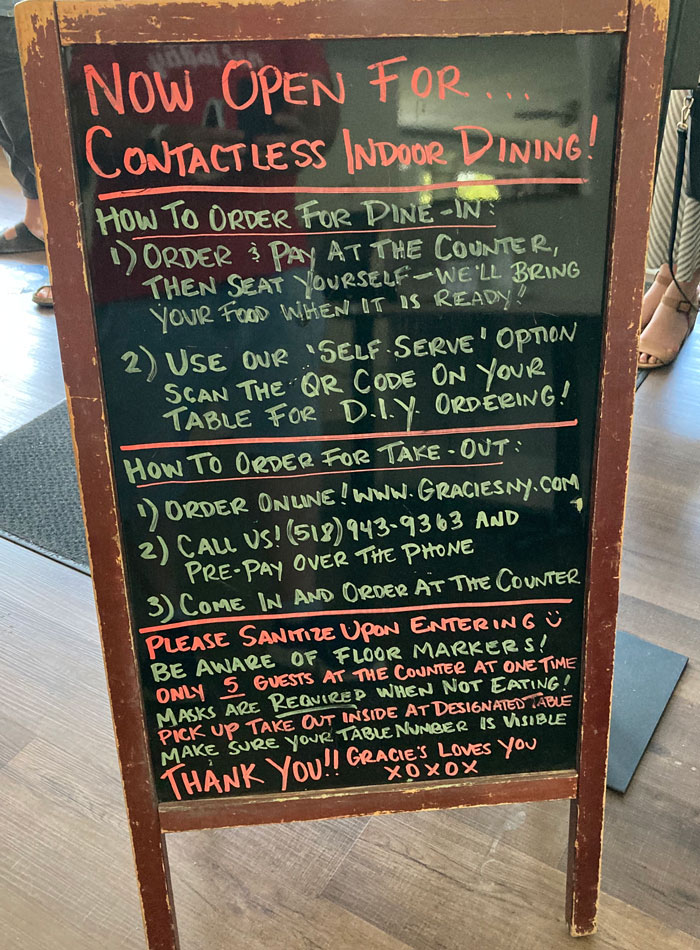 NOW OPEN FOR...
CONTACTLESS INDOOR DINING!
HOW TO ORDER FOR DINE-IN:
1) ORDER & PAY AT THE COUNTER,
THEN SEAT YOURSELF - WE'LL BRING
YOUR FOOD WHEN IT IS READY!
2) USE OUR 'SELF-SERVE' OPTION
SCAN THE QR CODE ON YOUR
TABLE FOR D.I.Y. ORDERING!
HOW TO ORDER FOR TAKE-OUT:
1) ORDER ONLINE! WWW.GRACIESNY.COM
2) CALL US! (518) 943-9363 AND
PRE-PAY OVER THE PHONE
3) COME IN AND ORDER AT THE COUNTER
PLEASE SANITIZE UPON ENTERING
BE AWARE OF FLOOR MARKERS!
ONLY 5 GUESTS AT THE COUNTER AT ONE TIME
MASKS ARE REQUIRED WHEN NOT EATING!
PICK UP TAKE OUT INSIDE AT DESIGNATED TABLE
MAKE SURE YOUR TABLE NUMBER IS VISIBLE
THANK YOU!! GRACIE'S LOVES YOU
XOXOX